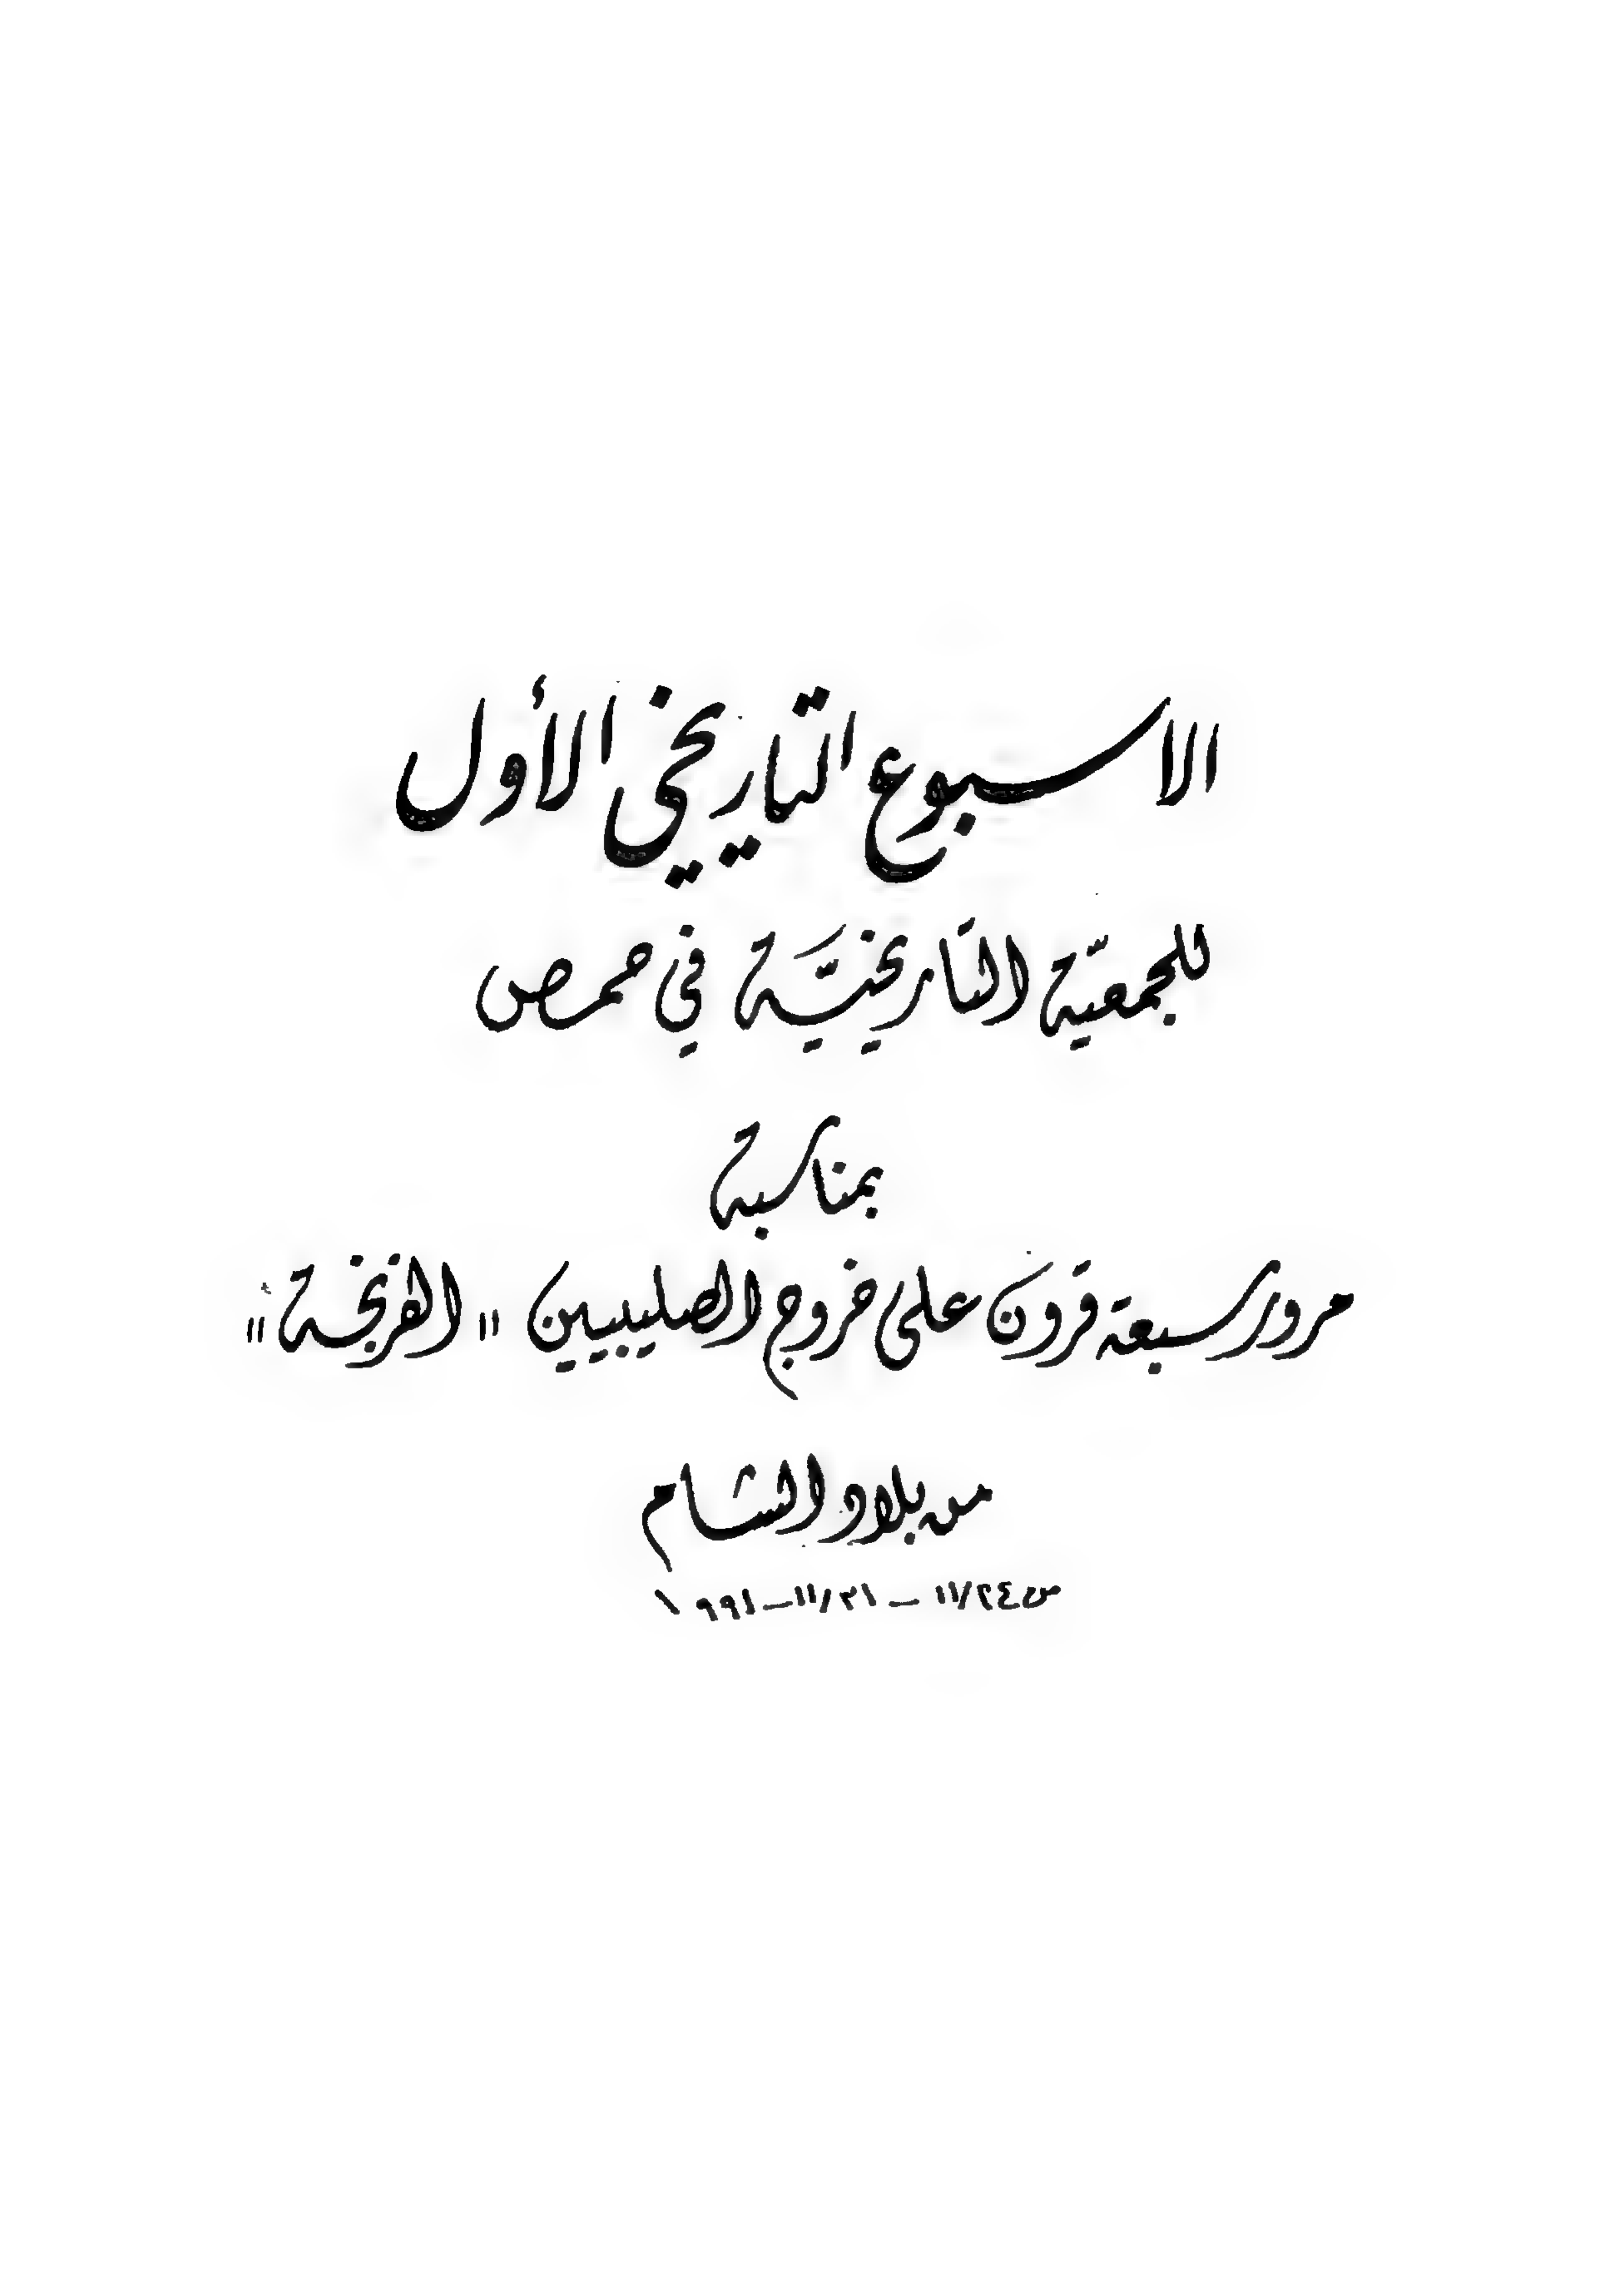 الاسبوع التاريخي الأول
للجمعيّة التاريخيّة في حمص
بمناسبة
مرور سبعة قرون على خروج الصليبيين "الفرنجة"
من بلاد الشام
من ٢٤/١١ - ٣١/١١-١٩٩١